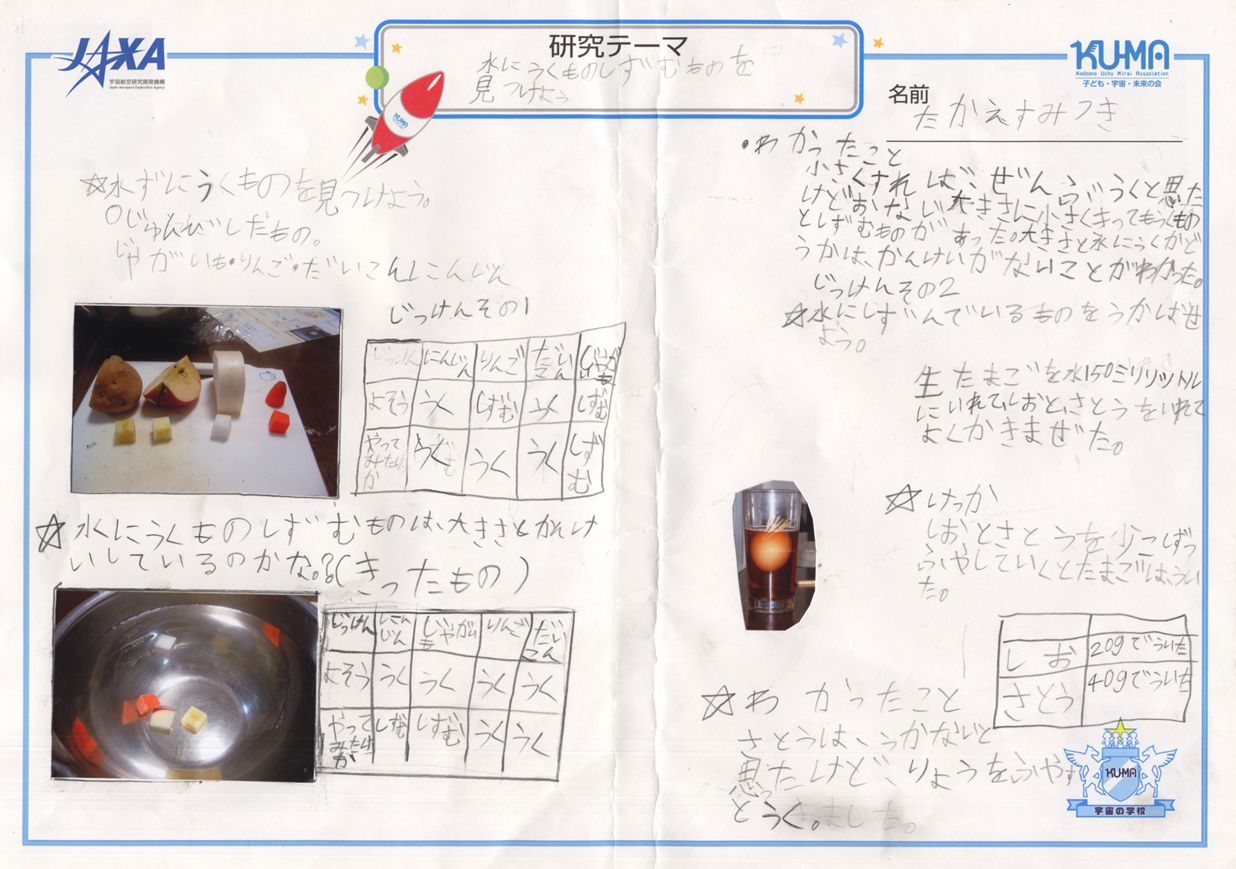 JAXA
宇宙航空研究開発機構
Japan Aerospace Exploration Agency
研究テーマ
水にうくものしずむものを
見つけよう
KUMA
KU-MA
Kodomo Uchu Mirai Association
子ども・宇宙・未来の会
名前
たかえすみつき
☆水ずにうくものを見つけよう。
○じゅんびしたもの。
じゃがいも・りんご・だいこんにんじん
じっけんその1
じっけん にんじん りんご だいこん じゃがいも
よそう うく しずむ うく しずむ
やってみたけっか うく うく うく しずむ
☆水にうくものしずむものは、大きさとかんけ
いしているのかな。?(きったもの)
じっけん にんじん じゃがいも りんご だいこん
よそう うく うく うく うく
やってみたけっか しずむ しずむ うく うく
・わかったこと
小さくすれば、ぜんぶうくと思た
けどおなじ大きさに小さくきってもうくもの
としずむものがあった。大きさと水にうくかど
うかは、かんけいがないことがわかった。
じっけんその2
☆水にしずんでいるものをうかばせ
よう。
生たまごを水150ミリリットル
にいれて、しおと、さとうをいれて
よくかきまぜた。
☆けっか
しおとさとうを少こしずつ
ふやしていくとたまごは、うい
た。
しお 20gでういた
さとう 40gでういた
☆わかったこと
さとうは、うかないと
思ったけど、りょうをふやす
とうく。ました。
KU-MA
宇宙の学校